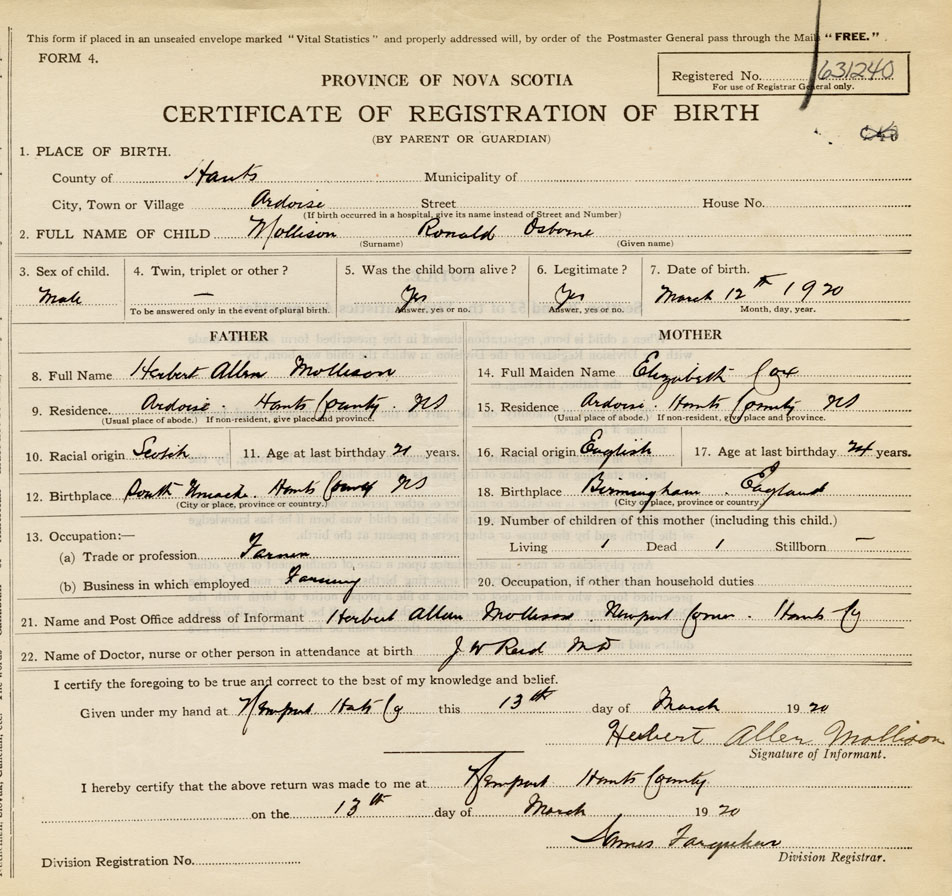 This form if placed in an unsealed envelope marked "Vital Statistics" and properly addressed will, by order of the Postmaster General pass through the Mails "FREE."
FORM 4.
Registered No. 631240
For use of Registrar General only.
PROVINCE OF NOVA SCOTIA
CERTIFICATE OF REGISTRATION OF BIRTH
(BY PARENT OR GUARDIAN)
1. PLACE OF BIRTH.
County of Hants Municipality of
City, Town or Village Ardoise Street House No.
(If birth occurred in a hospital, give its name instead of Street and Number)
2. FULL NAME OF CHILD Mollison Ronald Osborne
(Surname) (Given name)
3. Sex of child. 4. Twin, triplet or other? 5. Was the child born alive? 6. Legitimate? 7. Date of birth.
Male — Yes Yes March 12th 1920
To be answered only in the event of plural birth. Answer, yes or no. Answer, yes or no. Month, day, year.
FATHER MOTHER
8. Full Name Herbert Allen Mollison 14. Full Maiden Name Elizabeth Cox
9. Residence. Ardoise. Hants County. NS 15. Residence Ardoise. Hants County NS
(Usual place of abode.) If non-resident, give place and province. (Usual place of abode.) If non-resident, give place and province.
10. Racial origin Scotch 11. Age at last birthday 21 years. 16. Racial origin English 17. Age at last birthday 24 years.
12. Birthplace South Uniacke. Hants County NS 18. Birthplace Birmingham. England
(City or place, province or country.) (City or place, province or country.)
19. Number of children of this mother (including this child.)
13. Occupation:—
(a) Trade or profession Farmer Living 1 Dead 1 Stillborn —
(b) Business in which employed Farming 20. Occupation, if other than household duties
21. Name and Post Office address of Informant Herbert Allan Mollison. Newport Corner. Hants Cy
22. Name of Doctor, nurse or other person in attendance at birth J W Reid MD
I certify the foregoing to be true and correct to the best of my knowledge and belief.
Given under my hand at Newport Hants Cy this 13th day of March 1920
Herbert Allen Mollison
Signature of Informant.
I hereby certify that the above return was made to me at Newport Hants County
on the 13th day of March 1920
James Farquhar
Division Registration No. Division Registrar.